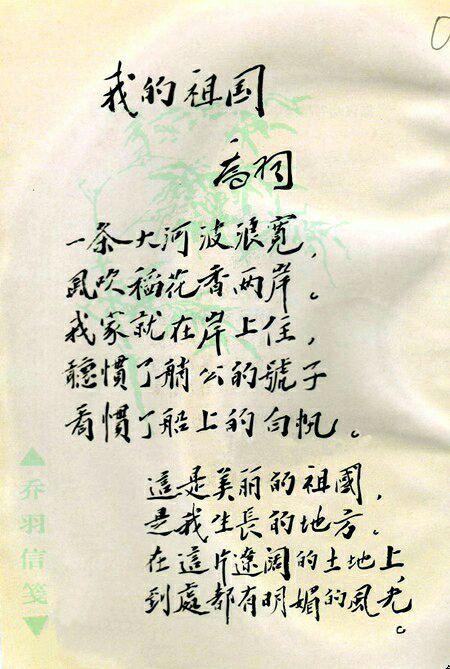 我的祖国
乔羽
一条大河波浪宽，
風吹稻花香两岸。
我家就在岸上住，
聽慣了艄公的號子
看慣了船上的白帆。
這是美丽的祖國，
是我生長的地方。
在這片遼阔的土地上，
到處都有明媚的風光。
▲乔羽信笺▼